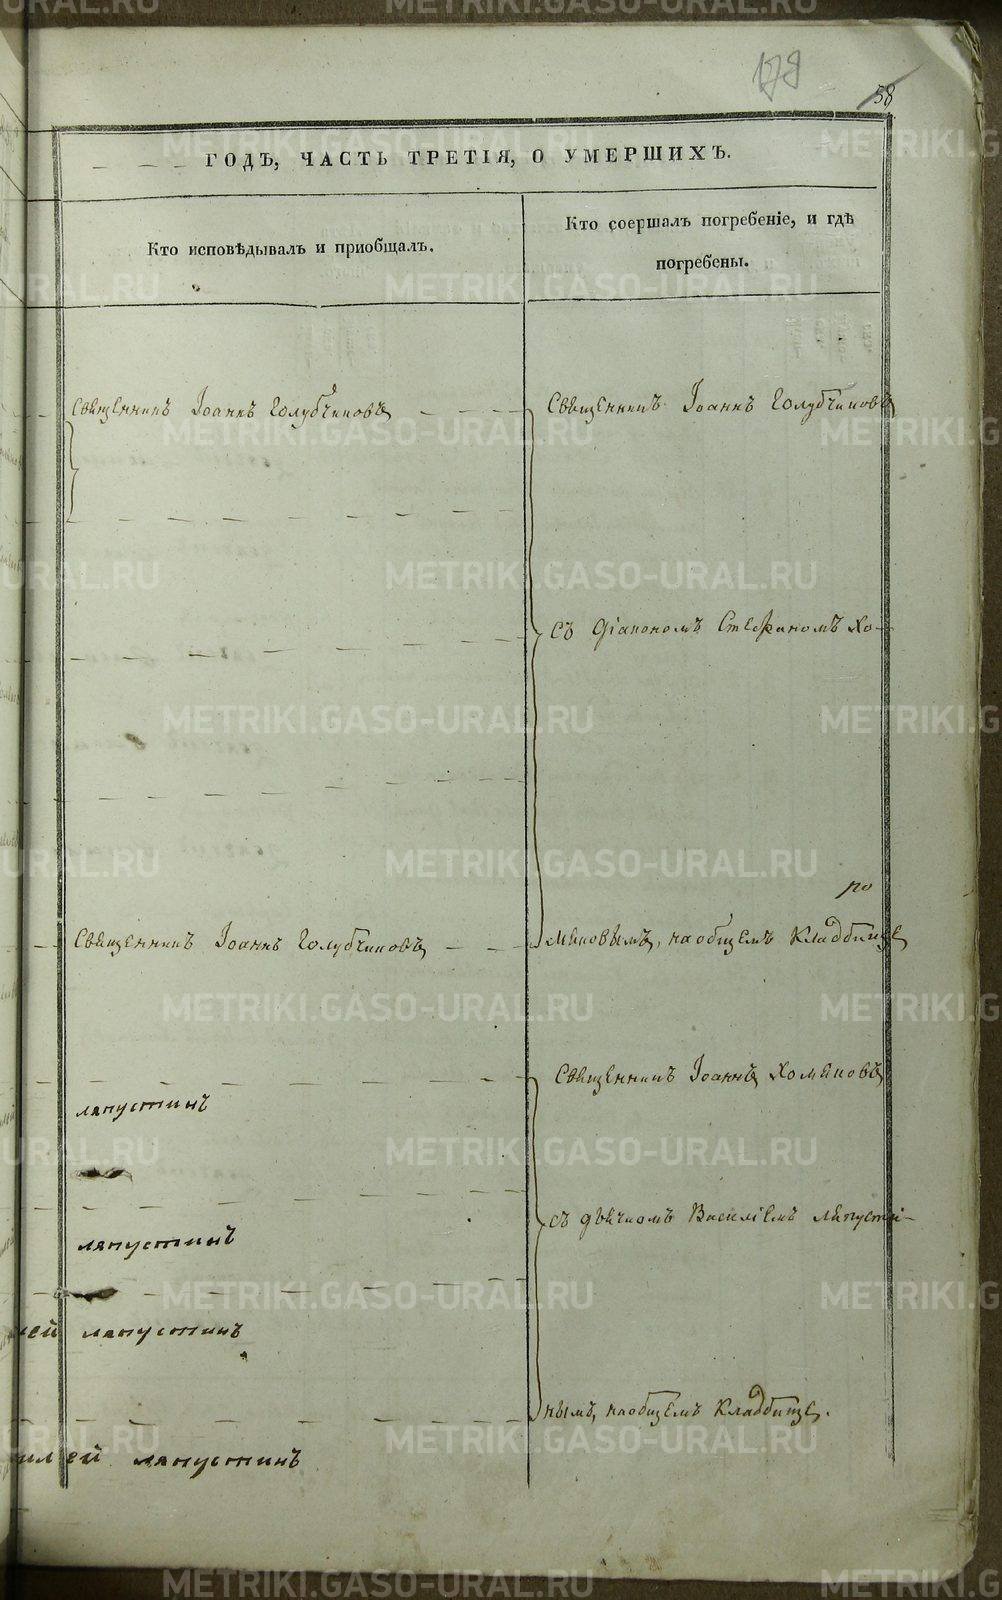 METRIKI.GASO-URAL.RU
178
58
ГОДЪ, ЧАСТЬ ТРЕТІЯ, О УМЕРШИХЪ.
Кто исповѣдывалъ и приобщалъ.
Кто соершалъ погребеніе, и гдѣ
погребены.
Священникъ Іоаннъ Голубчиковъ
Священникъ Іоаннъ Голубчиковъ
съ Діакономъ Стефаномъ Хо-
Священникъ Іоаннъ Голубчиковъ
мяковымъ, на общемъ Кладбище
Священникъ Іоаннъ Хомяковъ
ляпустинъ
съ дьячкомъ Василіемъ Ляпусти-
ляпустинъ
лей ляпустинъ
нымъ, на общемъ Кладбище.
илей ляпустинъ